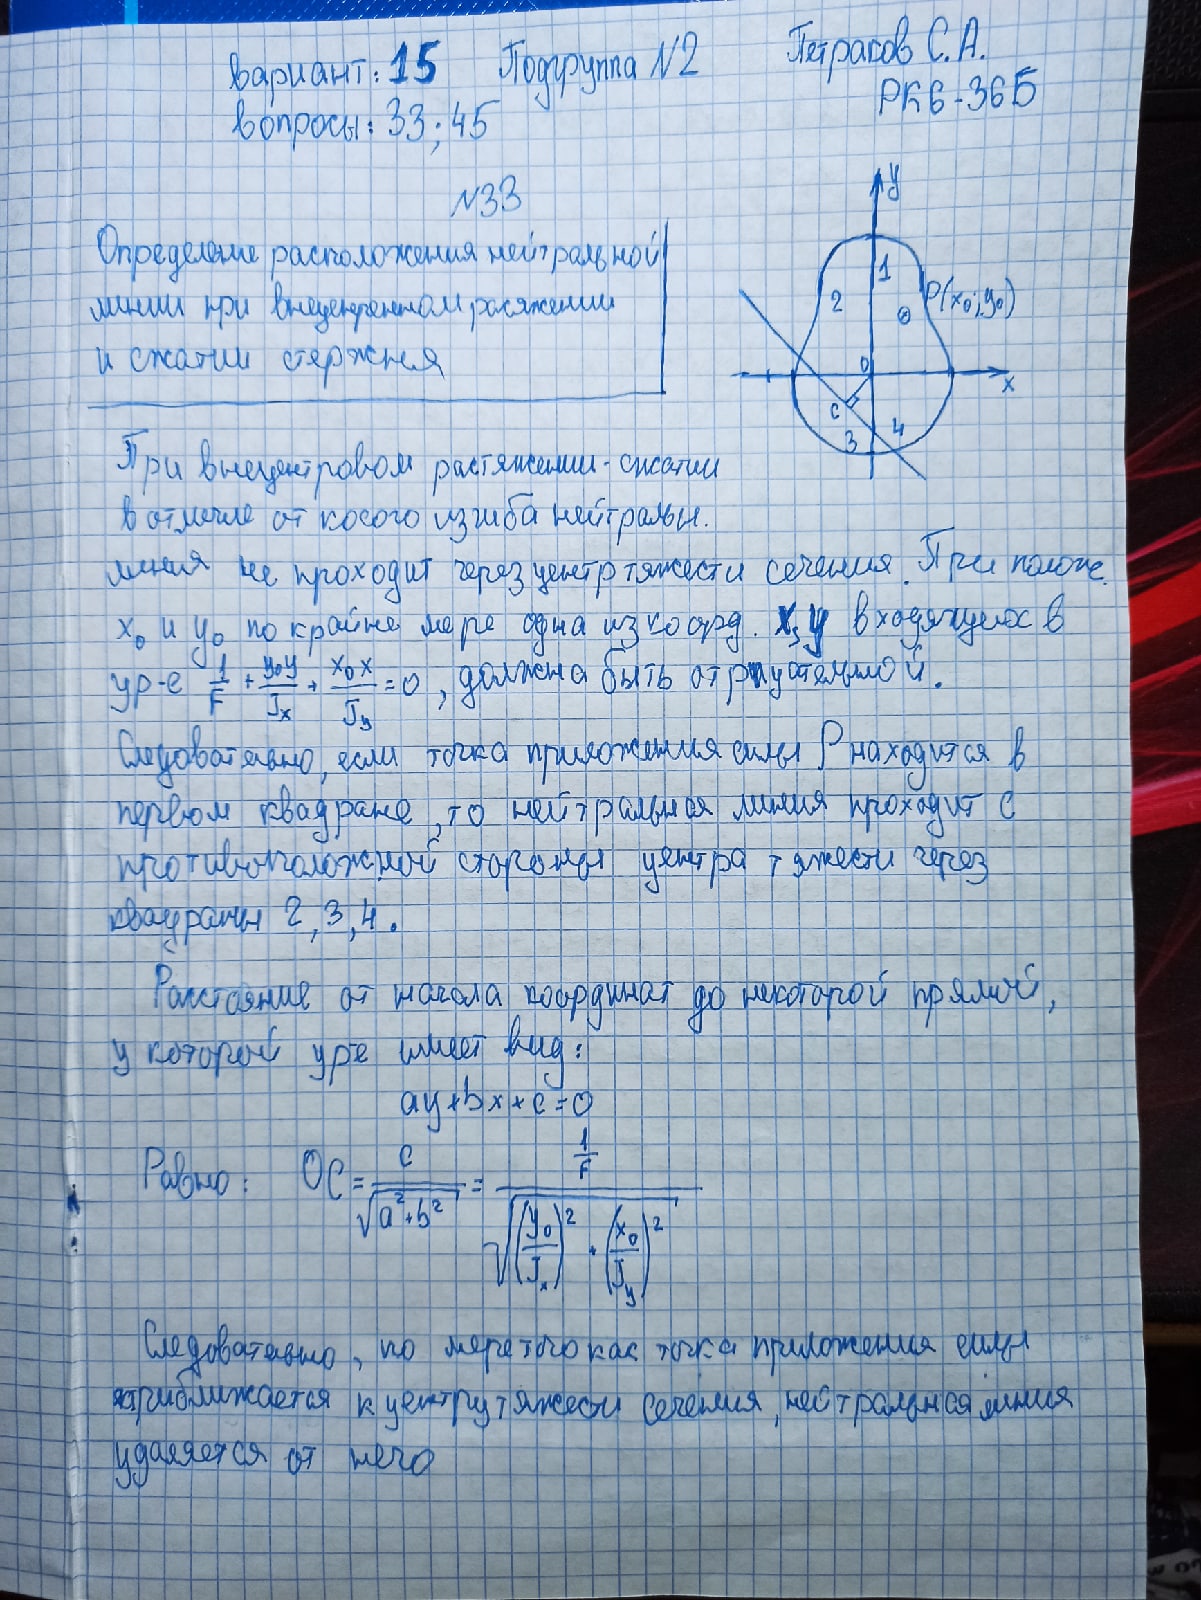 Вариант: 15 Подгруппа N2 Петраков С.А.
РК6-36Б
вопросы: 33; 45
N33
Определение расположения нейтральной
линии при внецентренном растяжении
и сжатии стержня
y
1
2
P(x₀; y₀)
0
x
C
3
4
При внецентровом растяжении-сжатии
в отличие от косого изгиба нейтральн.
линия не проходит через центр тяжести сечения. При полож.
x₀ и y₀ по крайне мере одна из коорд. x, y входящих в
ур-е 1/F + y₀y/Jx + x₀x/Jy = 0, должна быть отрицательной.
Следовательно, если точка приложения силы P находится в
первом квадране, то нейтральная линия проходит с
противоположной стороны центра тяжести через
квадраны 2, 3, 4.
Расстояние от начала координат до некоторой прямой,
у которой ур-е имеет вид:
ay+bx+c=0
Равно: OC = c/√(a²+b²) = (1/F)/√((y₀/Jx)² + (x₀/Jy)²)
Следовательно, по мере того как точка приложения силы
приближается к центру тяжести сечения, нейтральная линия
удаляется от него